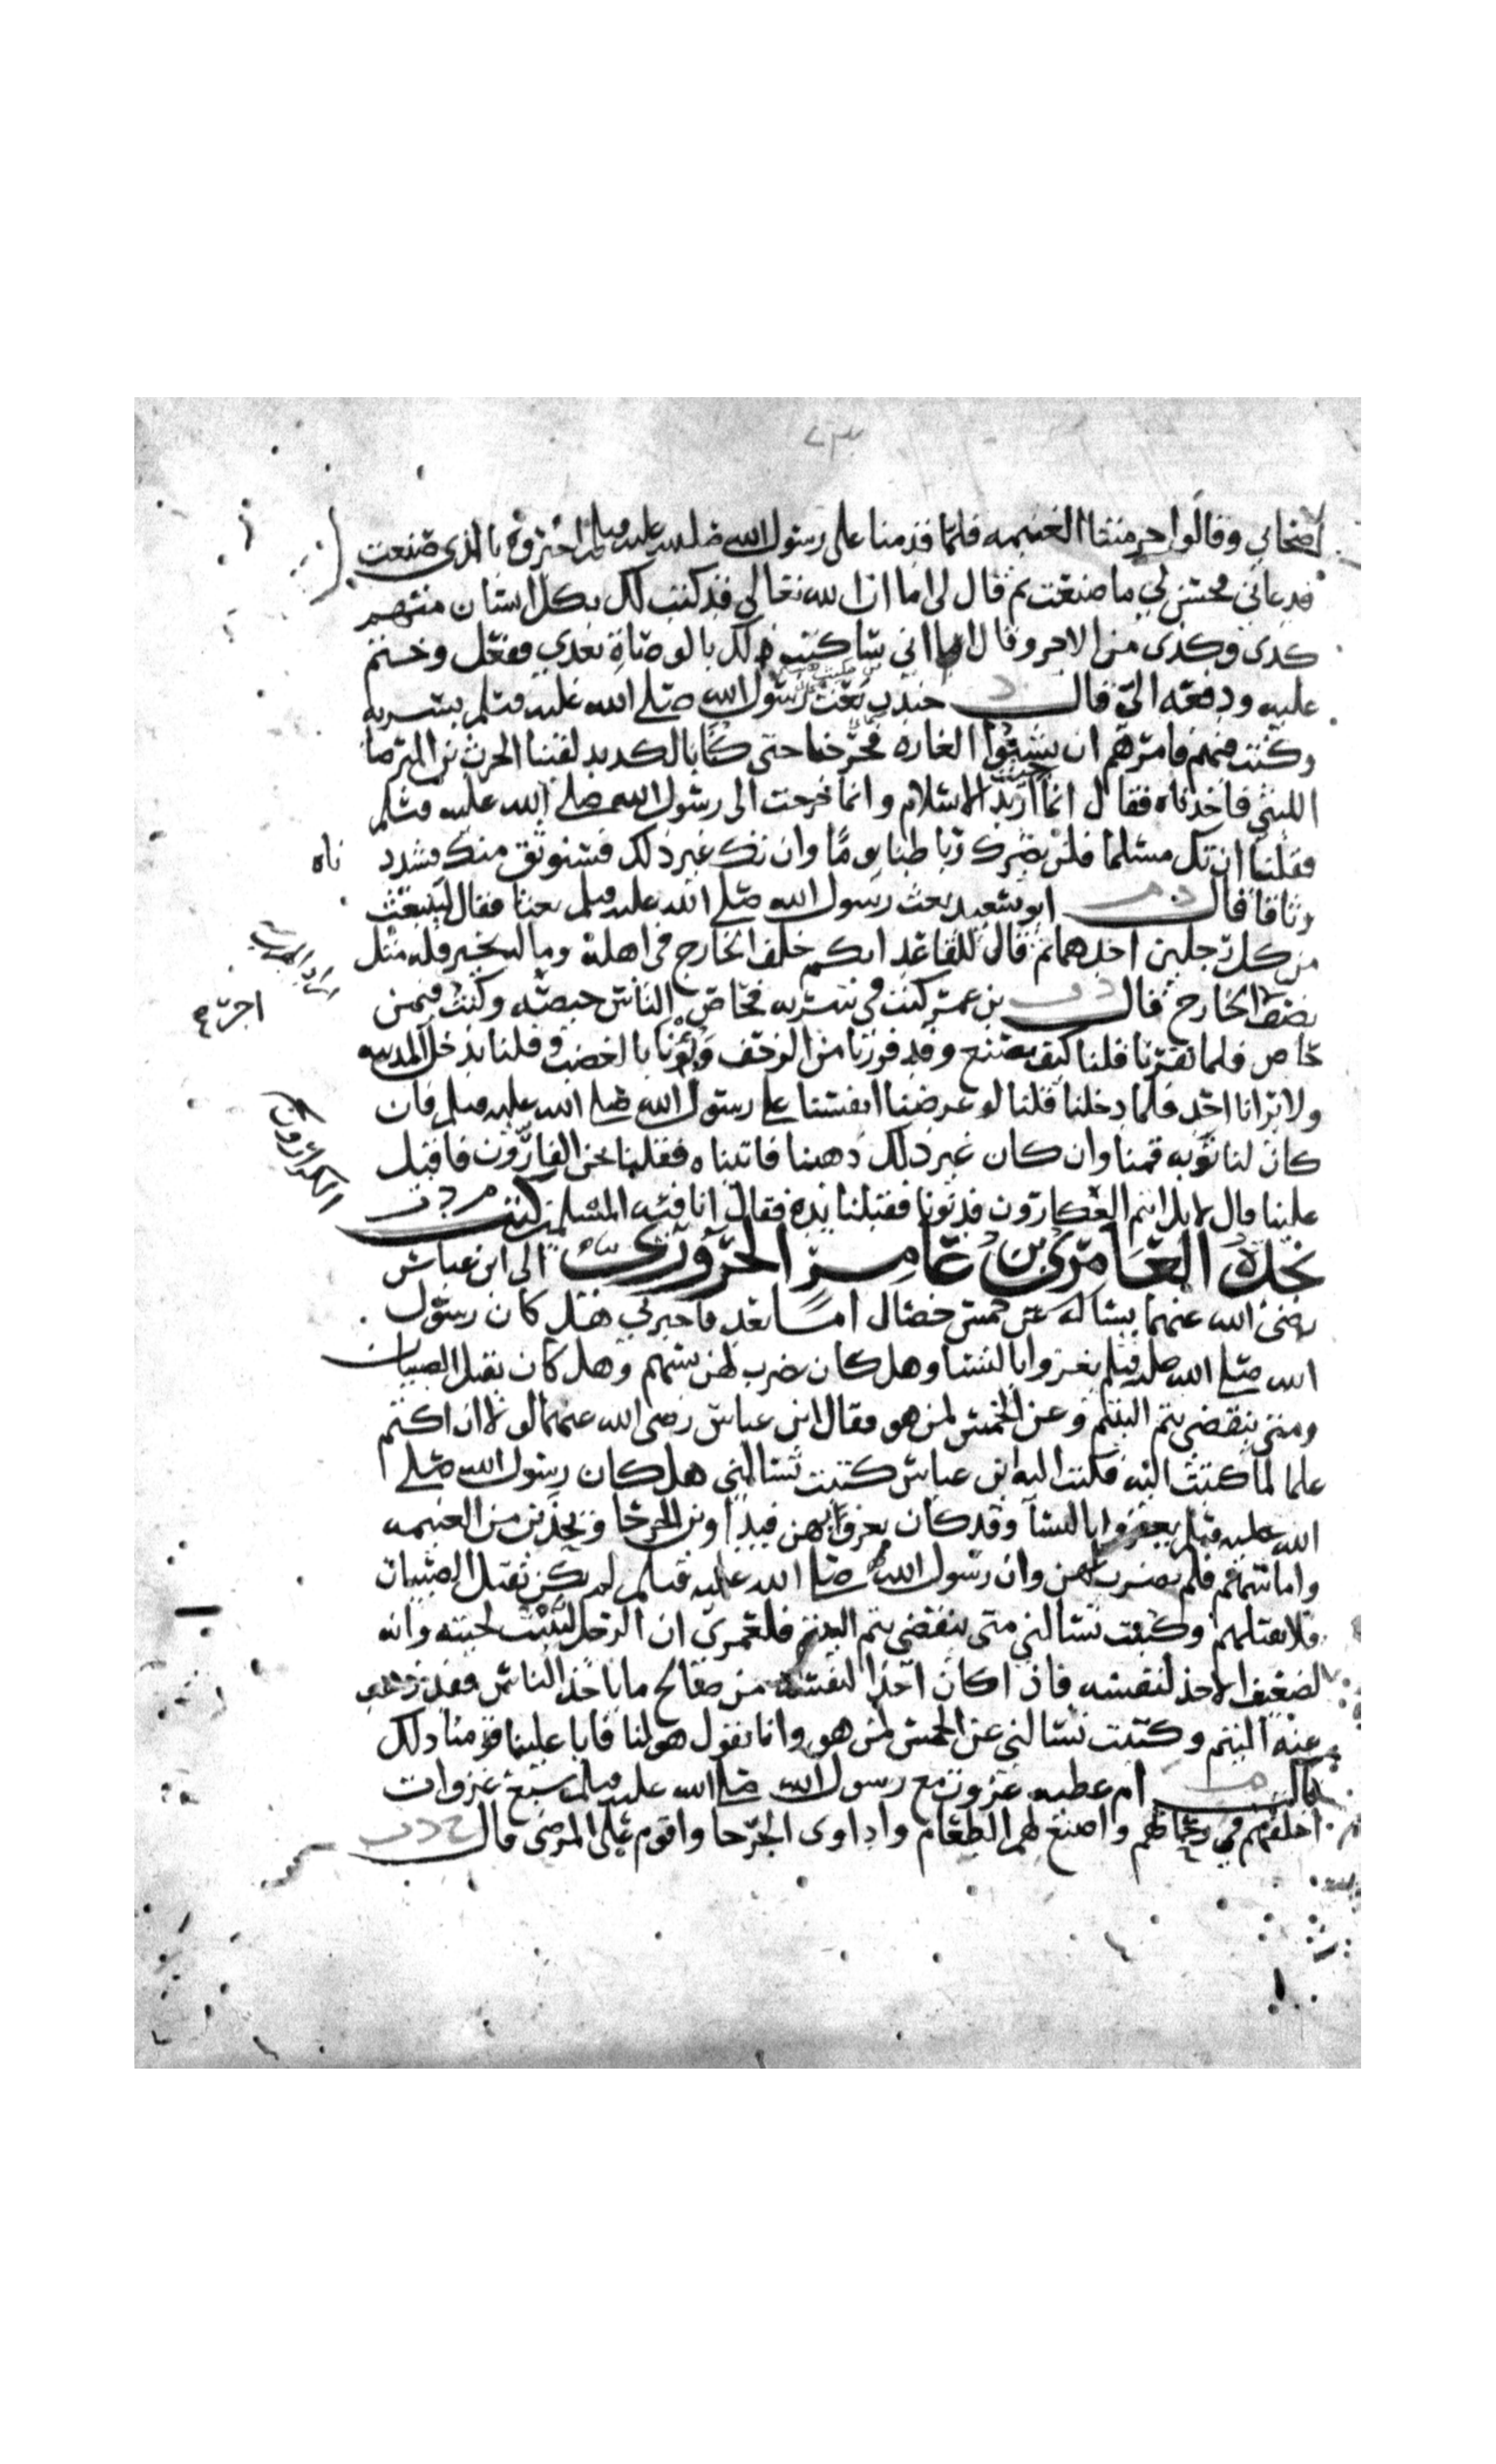 ٧٣
اصحابي وقالوا حرمتنا الغنيمه فلما قدمنا على رسول الله صلى الله عليه وسلم اخبروه بالذي صنعت
فدعاني فحسن لي ما صنعت ثم قال لي اما ان الله تعالى قد كتب لك بكل انسان منهم
كدى وكدى من الاجر وقال اما اني ساكتب لك بالوصاة بعدي ففعل وختم
عليه ودفعه الي قال د جندب بن مكيث بعث رسول الله صلى الله عليه وسلم بسريه
وكنت فيهم فامرهم ان يشنوا الغاره فخرجنا حتى كنا بالكديد لقينا الحرث بن البرصا
الليثي فاخذناه فقال انما جيت اريد الاسلام وانما خرجت الى رسول الله صلى الله عليه وسلم
فقلنا ان تك مسلما فلن يضرك رباطنا يوما وان تك غير ذلك فسنوثق منك فشددناه
وثاقا قال د م ابو سعيد بعث رسول الله صلى الله عليه وسلم بعثا فقال لينبعث
من كل رجلين احدهما ثم قال للقاعد ايكم خلف الخارج في اهله وماله بخير فله مثل
اجره
نصف الخارج قال د ت بن عمر كنت في سريه فحاص الناس حيصه وكنت فيمن
حاص فلما نفرنا قلنا كيف نصنع وقد فررنا من الزحف وبؤنا بالغضب وقلنا ندخل المدينه
ولا يرانا احد فلما دخلنا قلنا لو عرضنا انفسنا على رسول الله صلى الله عليه وسلم فان
كان لنا توبه قمنا وان كان غير ذلك ذهبنا فاتيناه فقلنا نحن الفارون فاقبل
الكرارون
علينا قال لا بل انتم العكارون فدنونا فقبلنا يده فقال انا فئه المسلمين م د ت كتب
نجدة العامري بن عامر الحروري الى ابن عباس
رضي الله عنهما يساله عن خمس خصال اما بعد فاخبرني هل كان رسول
الله صلى الله عليه وسلم يغزوا بالنسا وهل كان يضرب لهن بسهم وهل كان يقتل الصبيان
ومتى ينقضي يتم اليتيم وعن الخمس لمن هو فقال ابن عباس رضي الله عنهما لولا ان اكتم
علما لما كتبت اليه فكتب اليه ابن عباس كتبت تسالني هل كان رسول الله صلى
الله عليه وسلم يغزوا بالنسا وقد كان يغزوا بهن فيداوين الجرحا ويحذين من الغنيمه
واما بسهم فلم يضرب لهن وان رسول الله صلى الله عليه وسلم لم يكن يقتل الصبيان
فلا تقتلهم وكتبت تسالني متى ينقضي يتم اليتيم فلعمري ان الرجل لتنبت لحيته وانه
لضعيف الاخذ لنفسه فاذا كان اخذ لنفسه من صالح ما ياخذ الناس فقد ذهب
عنه اليتم وكتبت تسالني عن الخمس لمن هو وانا نقول هو لنا فابا علينا قومنا ذلك
قال م ام عطيه غزوت مع رسول الله صلى الله عليه وسلم سبع غزوات
اخلفهم في رحالهم واصنع لهم الطعام واداوى الجرحا واقوم على المرضى قال خ د ت